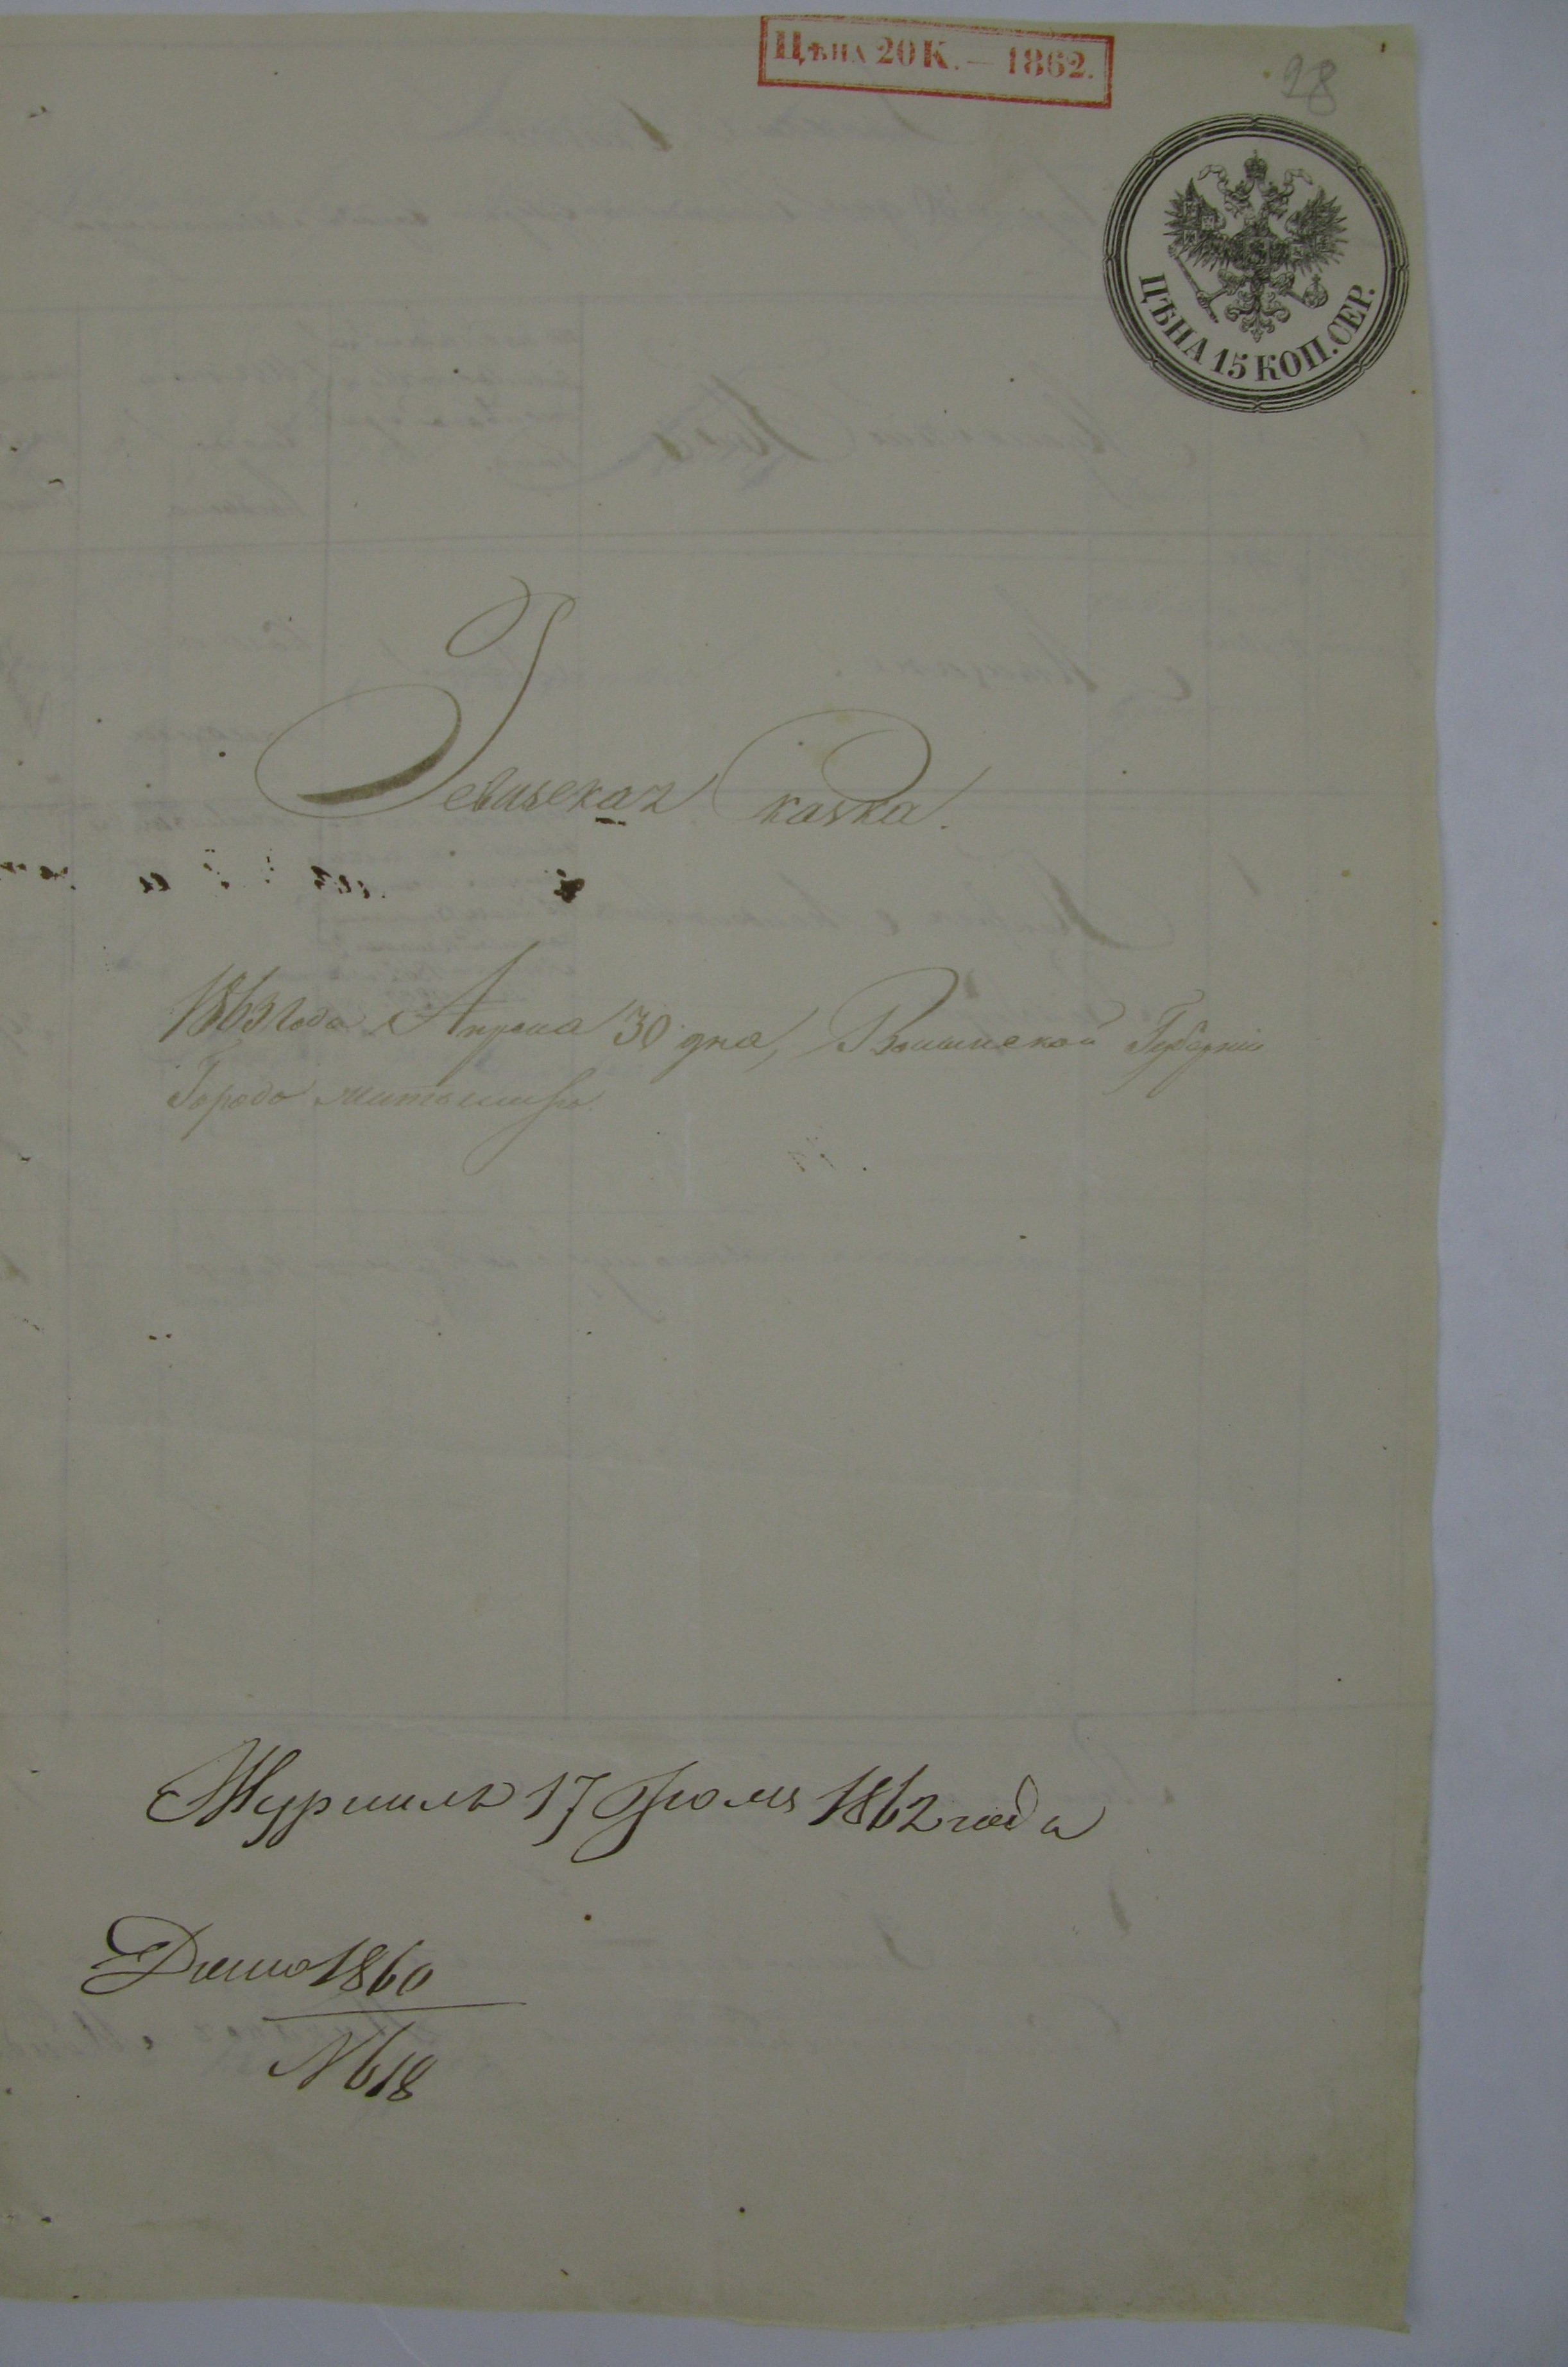 Цѣна 20 К. — 1862.
28
ЦѢНА 15 КОП. СЕР.
Ревизская Сказка.
года Апреля 30 дня, Волынской Губерніи
Города Житомира.
Журналъ 17 Іюля 1862 года
Дѣло 1860
№ 618